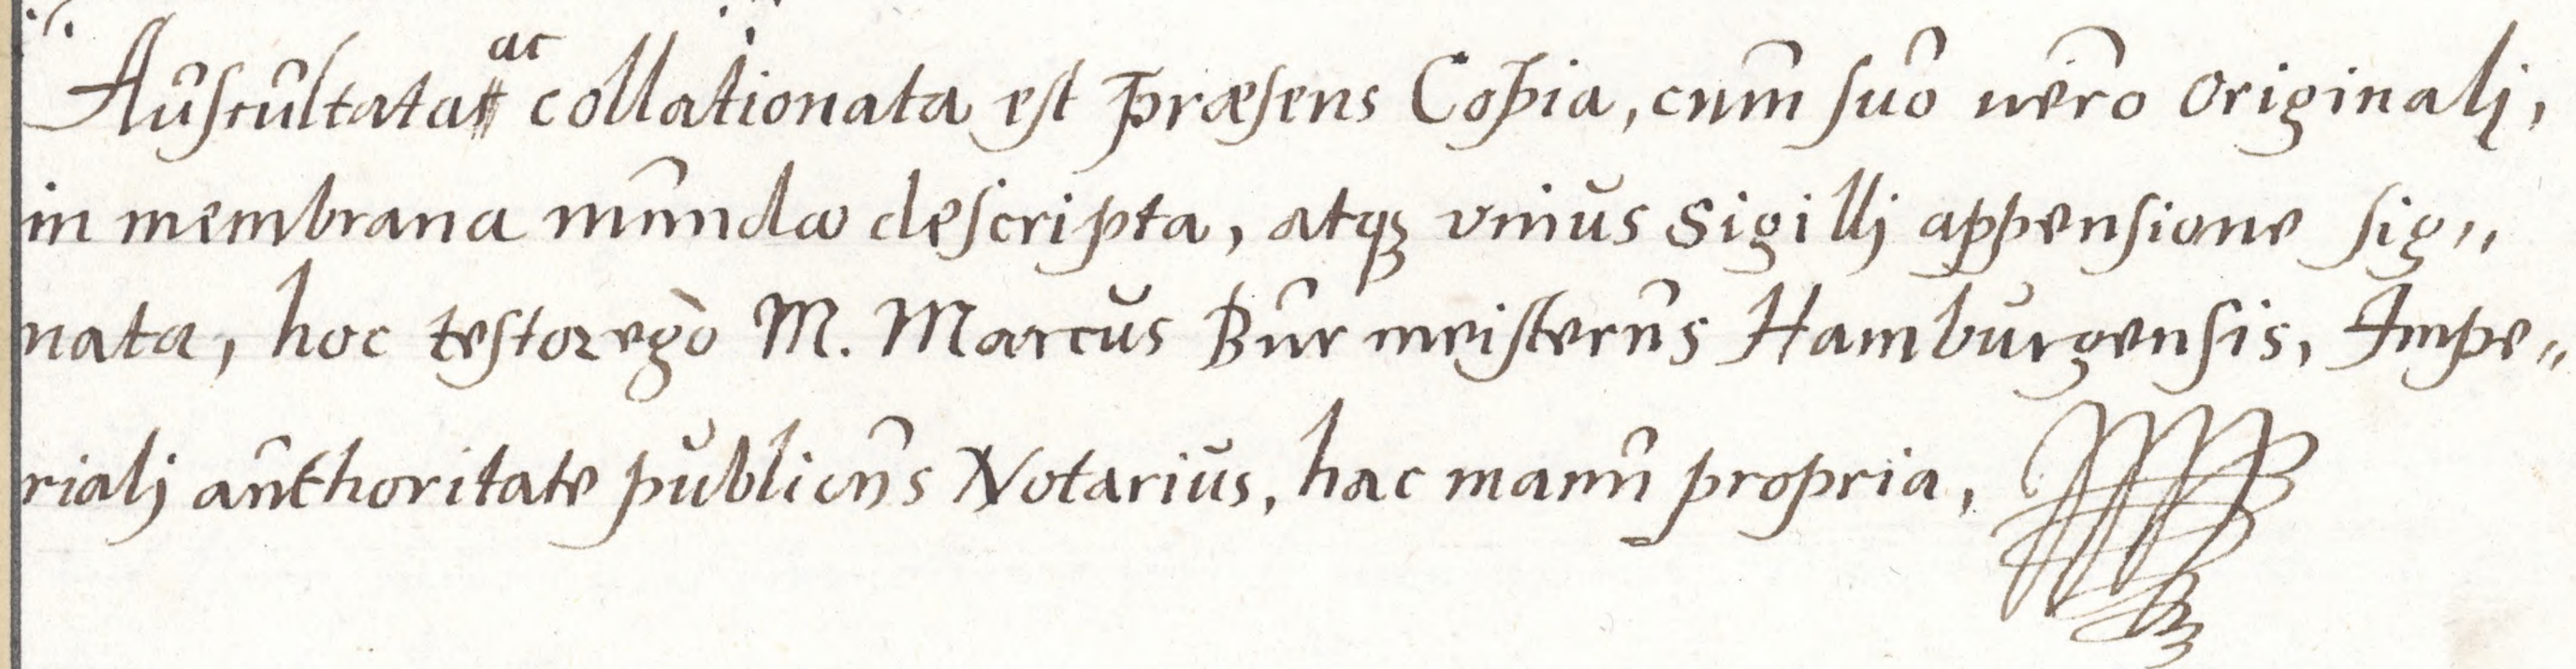 Auscultata ac collationata est præsens Copia, cum suo uero originalj,
in membrana munda descripta, atqȝ vnius sigillj appensione sig„
nata, hoc testor ego M. Marcus Burmeisterus Hamburgensis, Impe„
rialj authoritate publicus Notarius, hac manu propria,